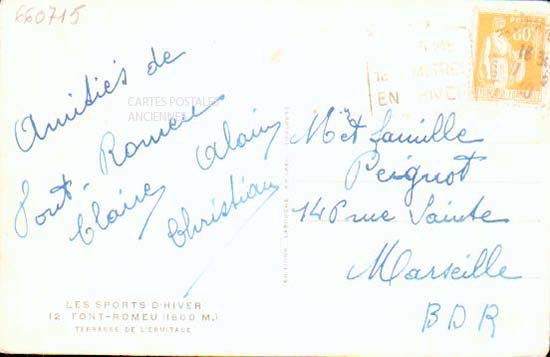 660715
CARTES POSTALES
ANCIENNES
Amitiés de
Font-Romeu
Claire Alain
Christian
Mr et famille
Peignot
14 rue Sainte
Marseille
BDR
LES SPORTS D'HIVER
12 FONT-ROMEU (1800 M.)
TERRASSE DE L'ERMITAGE
EN HIVER
80c